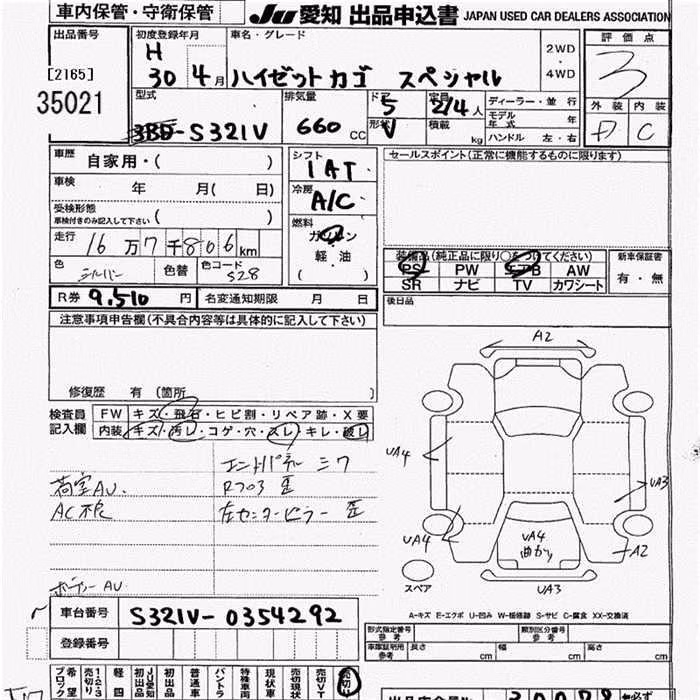 車内保管・守衛保管
JU 愛知 出品申込書 JAPAN USED CAR DEALERS ASSOCIATION
出品番号 初度登録年月 車名・グレード 2WD・4WD 評価点
[2165] H 30 年 4 月 ハイゼットカゴ スペシャル 3
35021
型式 排気量 ドア 定員 ディーラー・並行 外装 内装
3BD-S321V 660 CC 5 2/4 人 モデル年式 年
形状 V 積載 kg ハンドル 左・右 C
車歴 自家用・( ) シフト 1AT セールスポイント(正常に機能するものに限ります)
車検 年 月( 日) 冷房 A/C
受検形態
車検付きのみ記入して下さい ( )
燃料 ガソリン・軽油・( )
走行 16 万 7 千 806 km
色 シルバー 色替 色コード S28
装備品(純正品に限り○をつけてください) 新車保証書
PS PW エアB AW 有・無
SR ナビ TV カワシート
R券 9,510 円 名変通知期限 月 日 後日品
注意事項申告欄(不具合内容等は具体的に記入して下さい)
修復歴 有 (箇所
検査員記入欄 FW キズ・飛石・ヒビ割・リペア跡・X要
内装 キズ・汚レ・コゲ・穴・スレ・キレ・破レ
エンドパネル シワ
荷室AU. Rフロア 歪
AC不良 左センターピラー 歪
ボデーAU
A2
UA4
UA3
UA4
UA4
曲がり
A2
UA3
スペア
A-キズ E-エクボ U-凹み W-板修跡 S-サビ C-腐食 XX-交換済
車台番号 S321V-0354292
登録番号
形式指定番号 参考 類別区分番号 参考
車庫証明用 参考 長さ cm 幅 cm 高さ cm
希望ブロック 売切り 1・2・3 軽四 初出品 JU愛知 初出品 普通車 バントラ 特殊車両 現状車 売切現状 売切VT 売切り